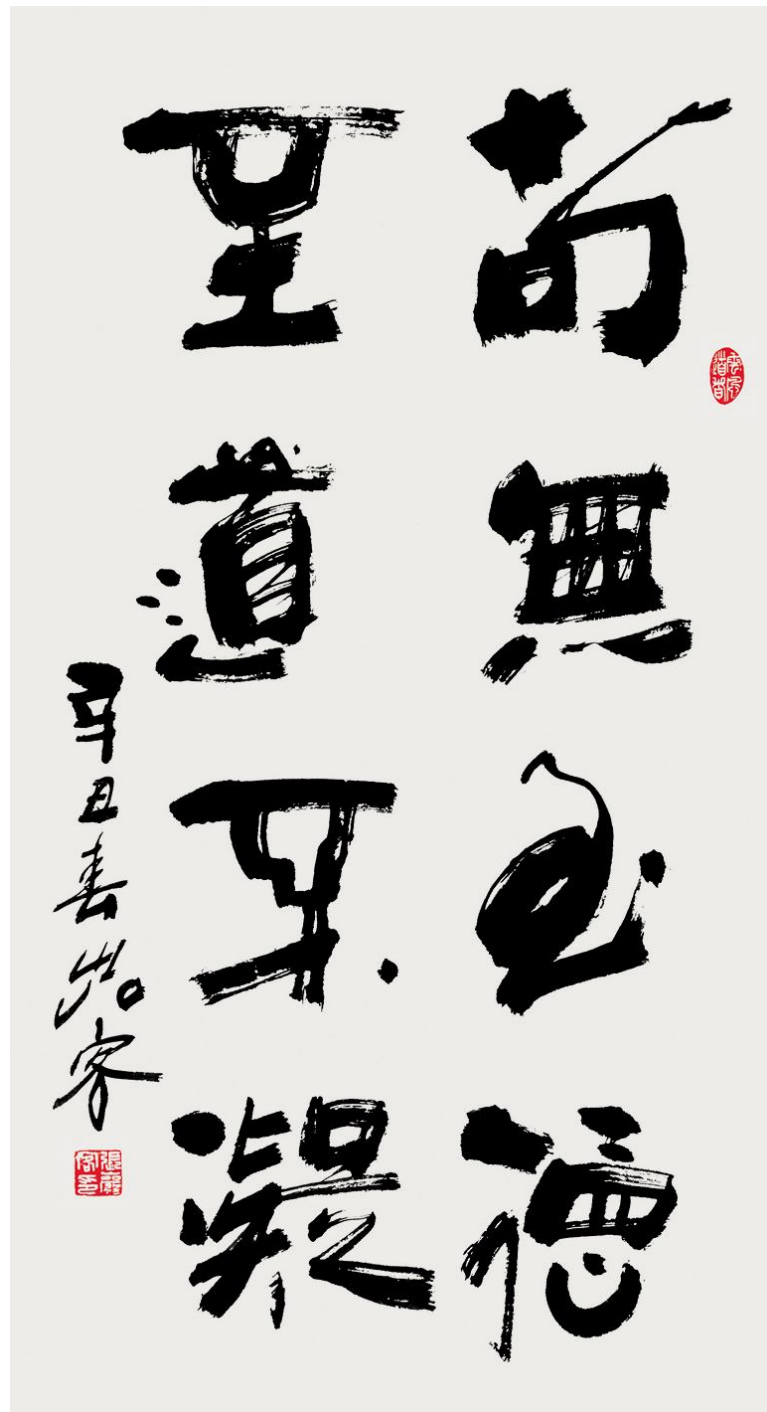 苟無至德
至道不凝
辛丑春客